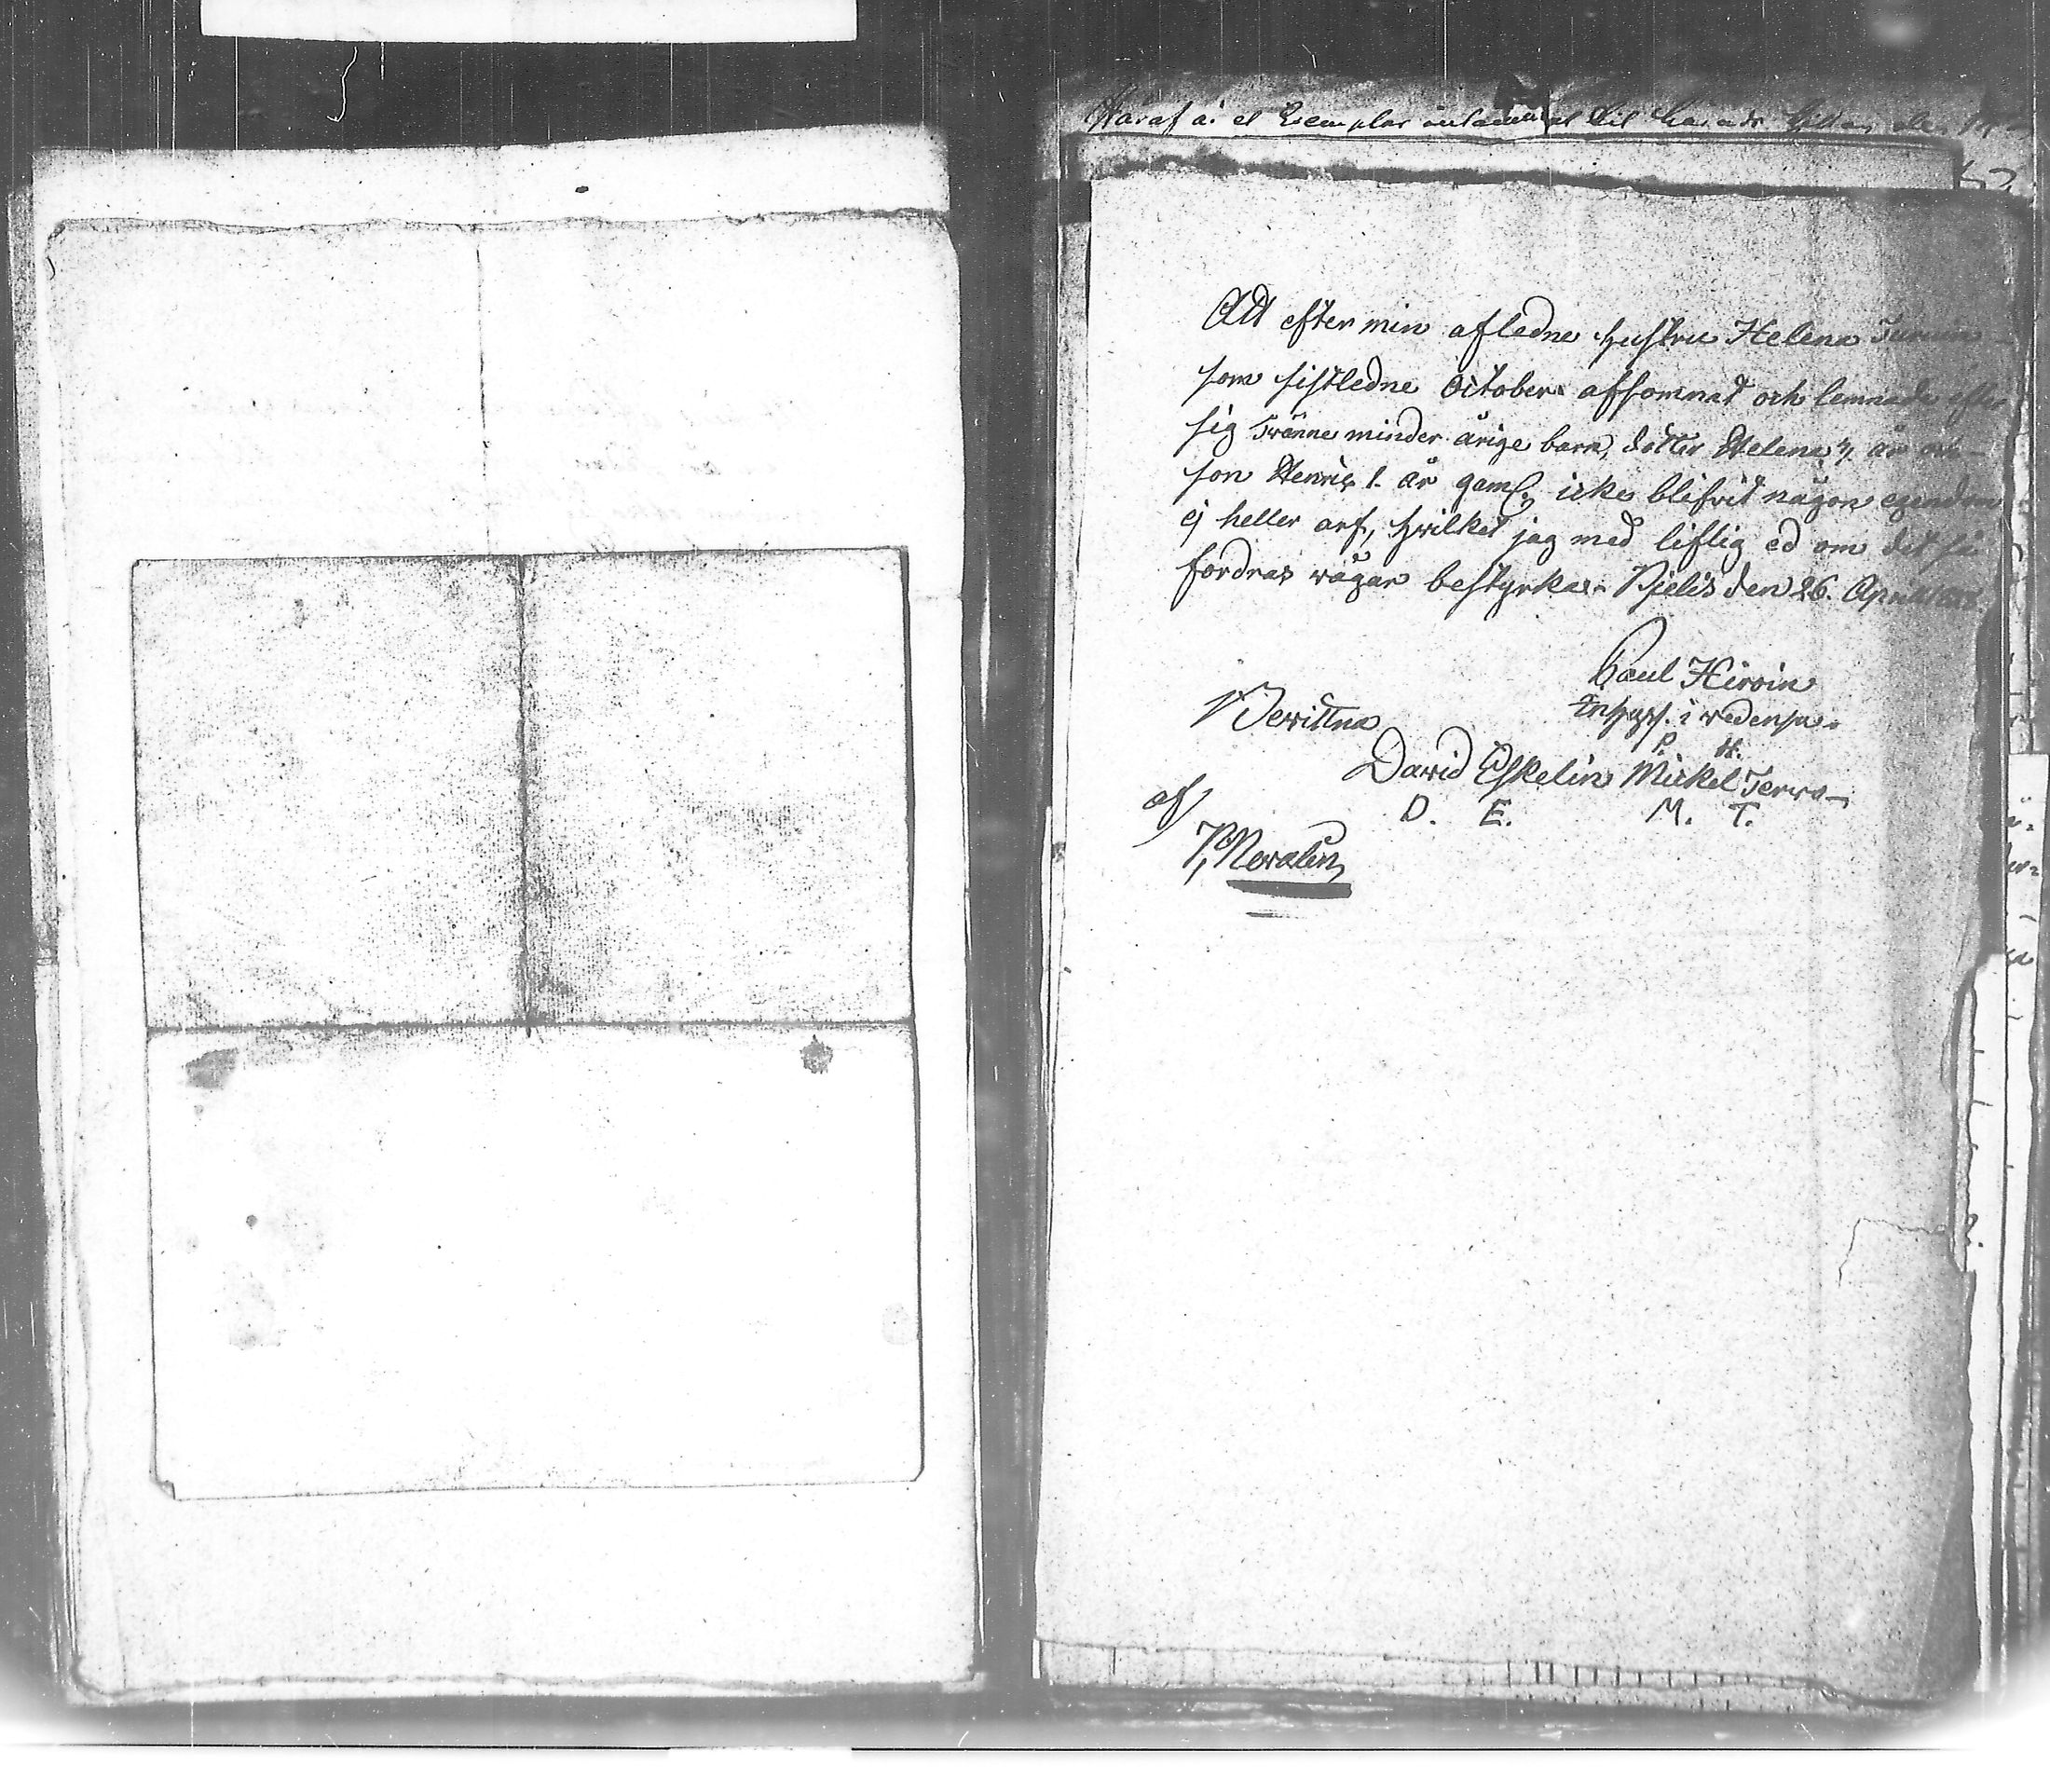 Häraf är et Exemplar
Att efter min afledne hustru Helena
som sistledne October afsomnat och lemnade efter
sig Tvänne minder årige barn, dotter Helena 4 år och
son Henric 1. år gaml. icke blifvit någon egendom
ej heller arf, hvilket jag med liflig ed om det så
fordras vågar bestyrka. Pjelis den 26. April
Paul Hirvin
Inhys. i
P. H.
Bevittna
David Eskelin Mickel Terva
D. E. M. T.
af
P. Noralin